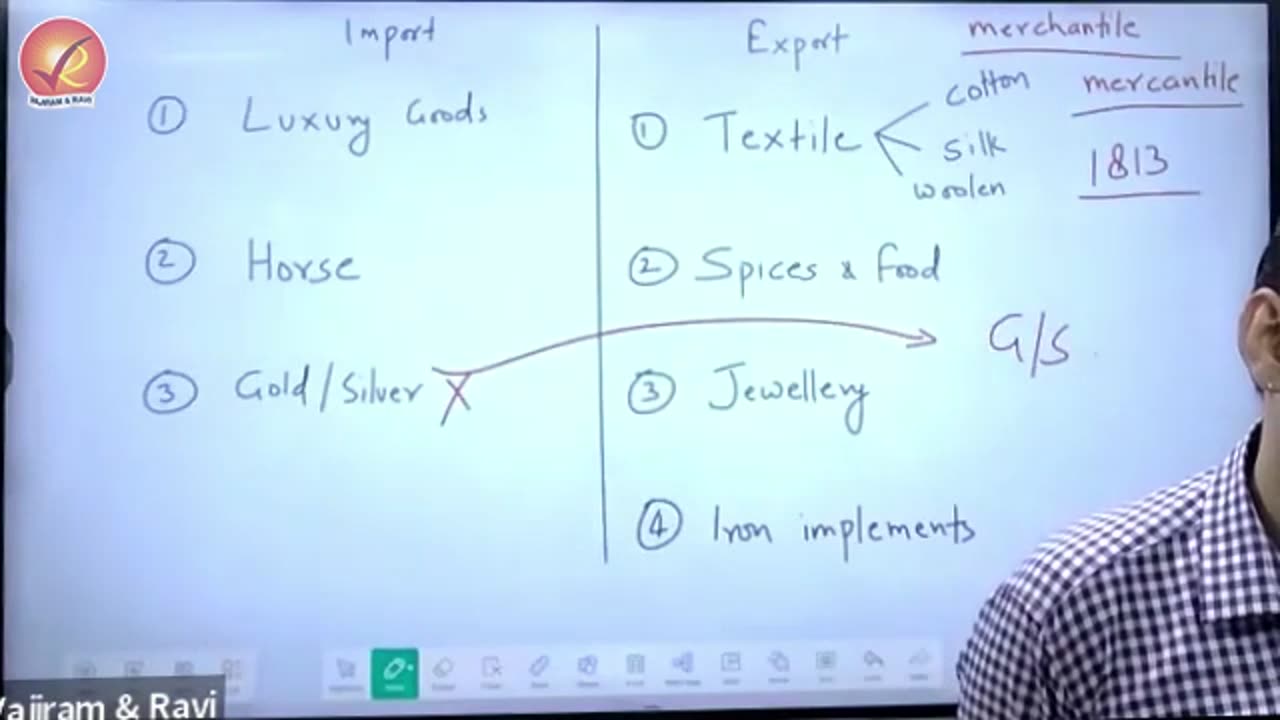 Import
① Luxury Goods
② Horse
③ Gold/Silver X
Export
① Textile
cotton
silk
woolen
② Spices & Food
G/S
③ Jewellery
④ Iron implements
merchantile
mercantile
1813
VAJIRAM & RAVI
Vajiram & Ravi